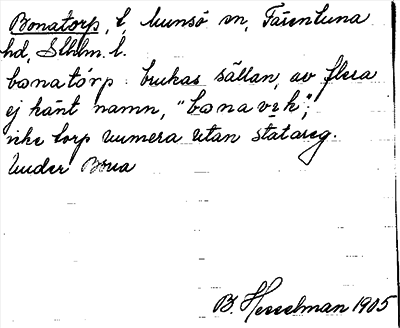 Bonatorp, t, Munsö sn, Färentuna
hd, Sthlm. l.
bonatórp: brukas sällan, av flera
ej känt namn, "bona vik";
icke torp numera utan statareg.
Under Bona
B. Hesselman 1905